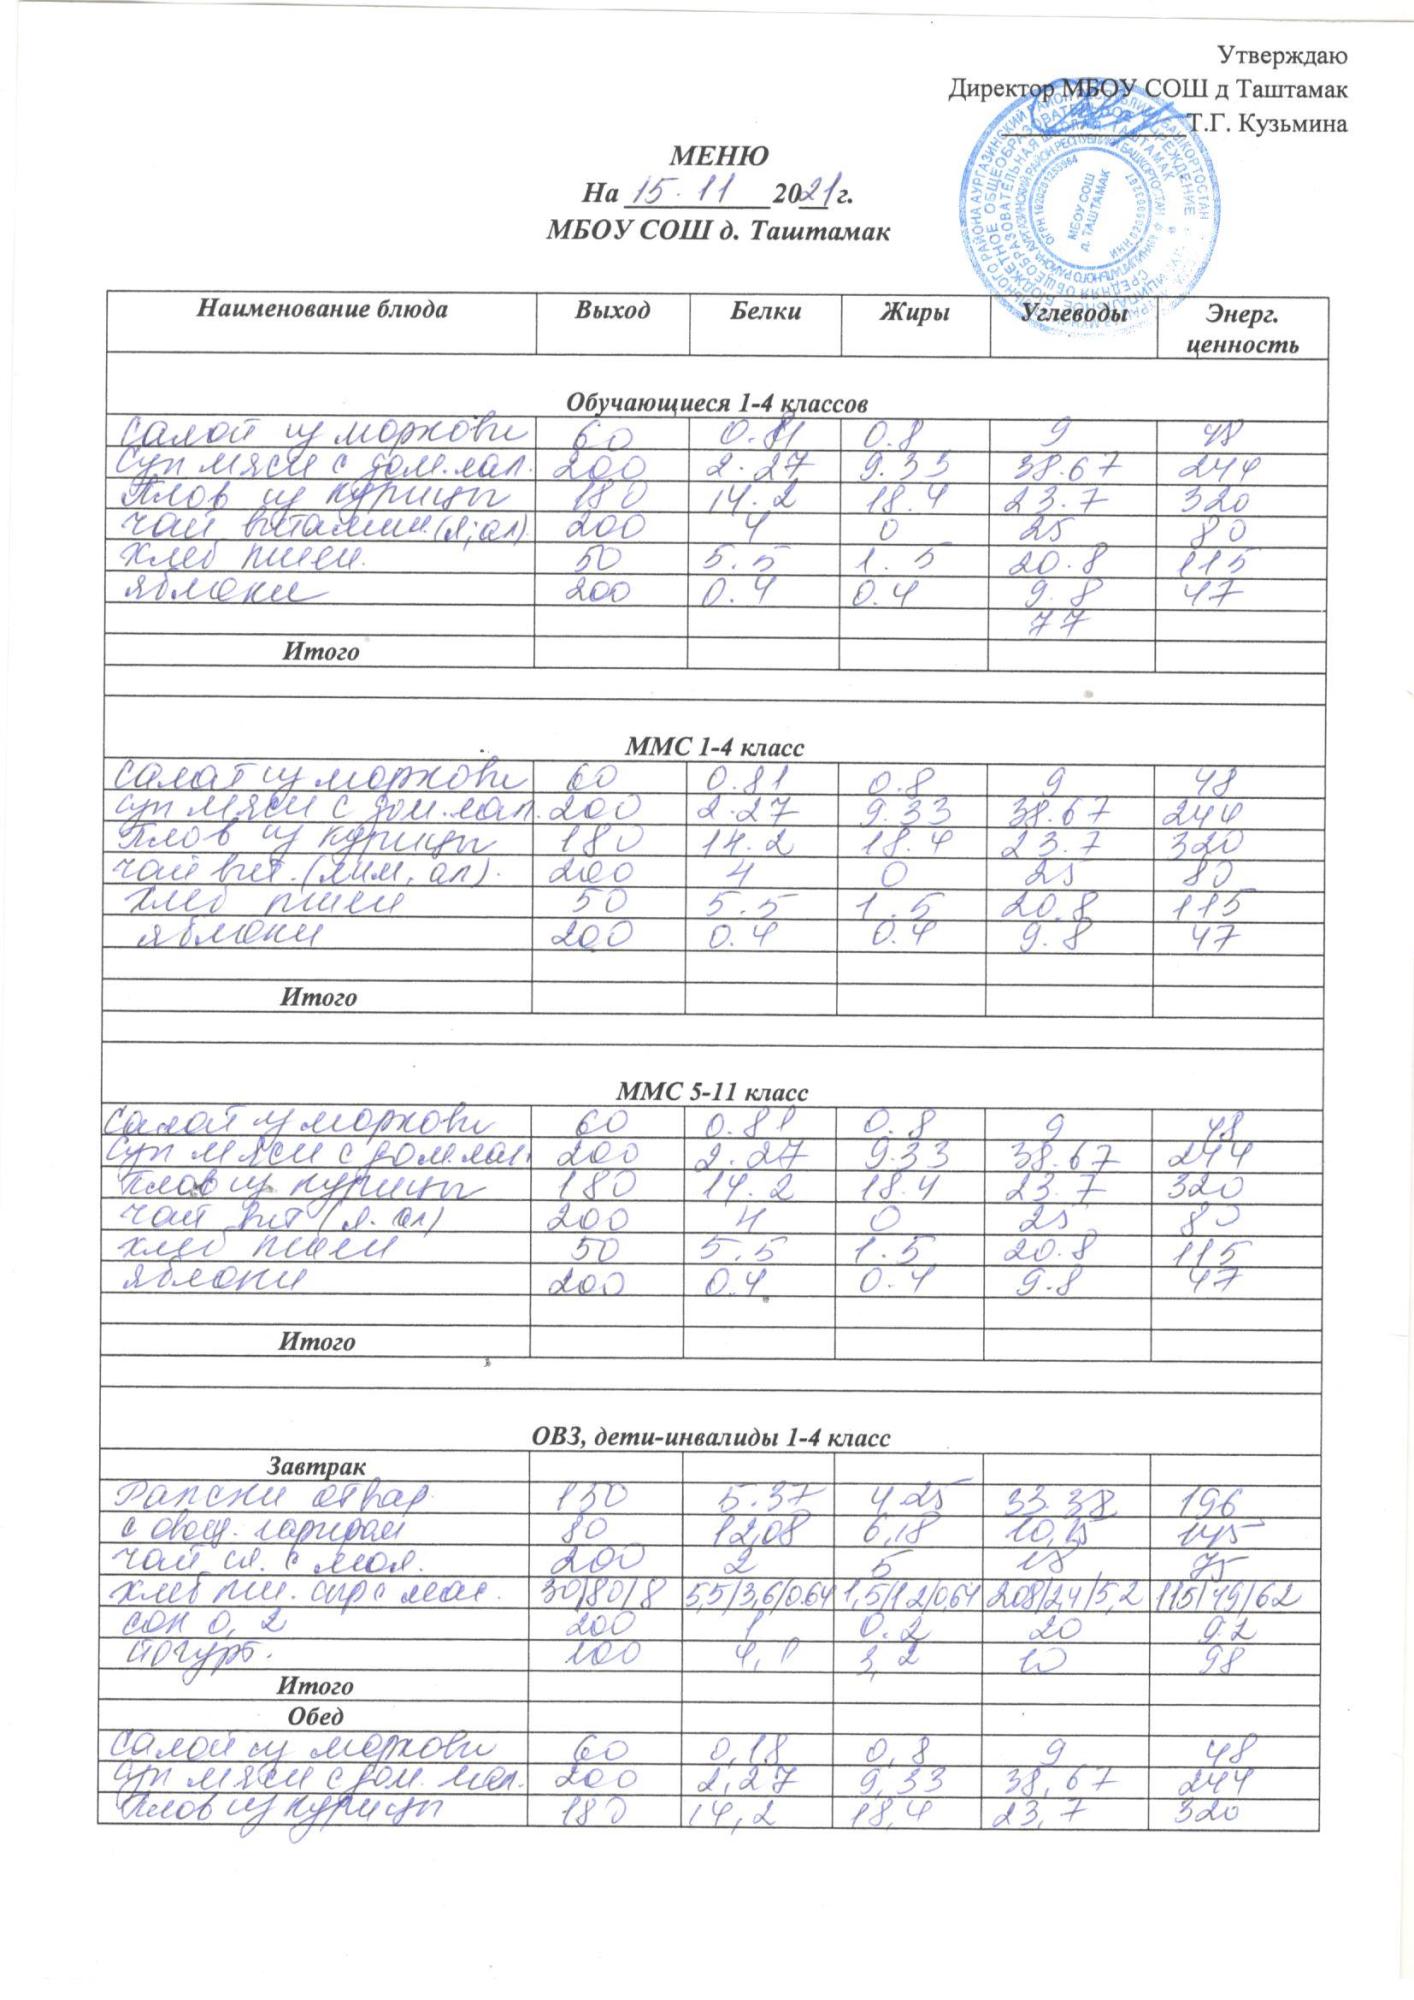 Утверждаю
Директор МБОУ СОШ д Таштамак
Т.Г. Кузьмина
МЕНЮ
На 15.11 2021 г.
МБОУ СОШ д. Таштамак
МБОУ СОШ
д. ТАШТАМАК
Наименование блюда Выход Белки Жиры Углеводы Энерг. ценность
Обучающиеся 1-4 классов
Салат из моркови 60 0.81 0.8 9 48
Суп мясн с дом.лап. 200 2.27 9.33 38.67 244
Плов из курицы 180 14.2 18.4 23.7 320
чай витамин. (л, ап) 200 4 0 25 80
хлеб пшен. 50 5.5 1.5 20.8 115
яблоки 200 0.4 0.4 9.8 47
77
Итого
ММС 1-4 класс
Салат из моркови 60 0.81 0.8 9 48
суп мясн с дом.лап. 200 2.27 9.33 38.67 244
Плов из курицы 180 14.2 18.4 23.7 320
чай вит. (лим, ап). 200 4 0 25 80
хлеб пшен 50 5.5 1.5 20.8 115
яблоки 200 0.4 0.4 9.8 47
Итого
ММС 5-11 класс
Салат из моркови 60 0.81 0.8 9 48
Суп мясн с дом.лап. 200 2.27 9.33 38.67 244
Плов из курицы 180 14.2 18.4 23.7 320
чай вит (л. ап) 200 4 0 25 80
хлеб пшен 50 5.5 1.5 20.8 115
яблоки 200 0.4 0.4 9.8 47
Итого
ОВЗ, дети-инвалиды 1-4 класс
Завтрак
отвар. 150 5.37 4.25 33.38 196
с овощ. 80 12,08 6,18 145
чай сл. с мол. 200 2 5 18 75
хлеб пш. сыр с мас. 30/80/8 5,5/3,6/0.64 1,5/12/0,64 208/24/5,2 115/49/62
сок 0,2 200 1 0.2 20 92
йогурт. 100 4,1 3,2 10 98
Итого
Обед
Салат из моркови 60 0,18 0,8 9 48
суп мясн с дом. лап. 200 2,27 9,33 38,67 244
Плов из курицы 180 14,2 18,4 23,7 320